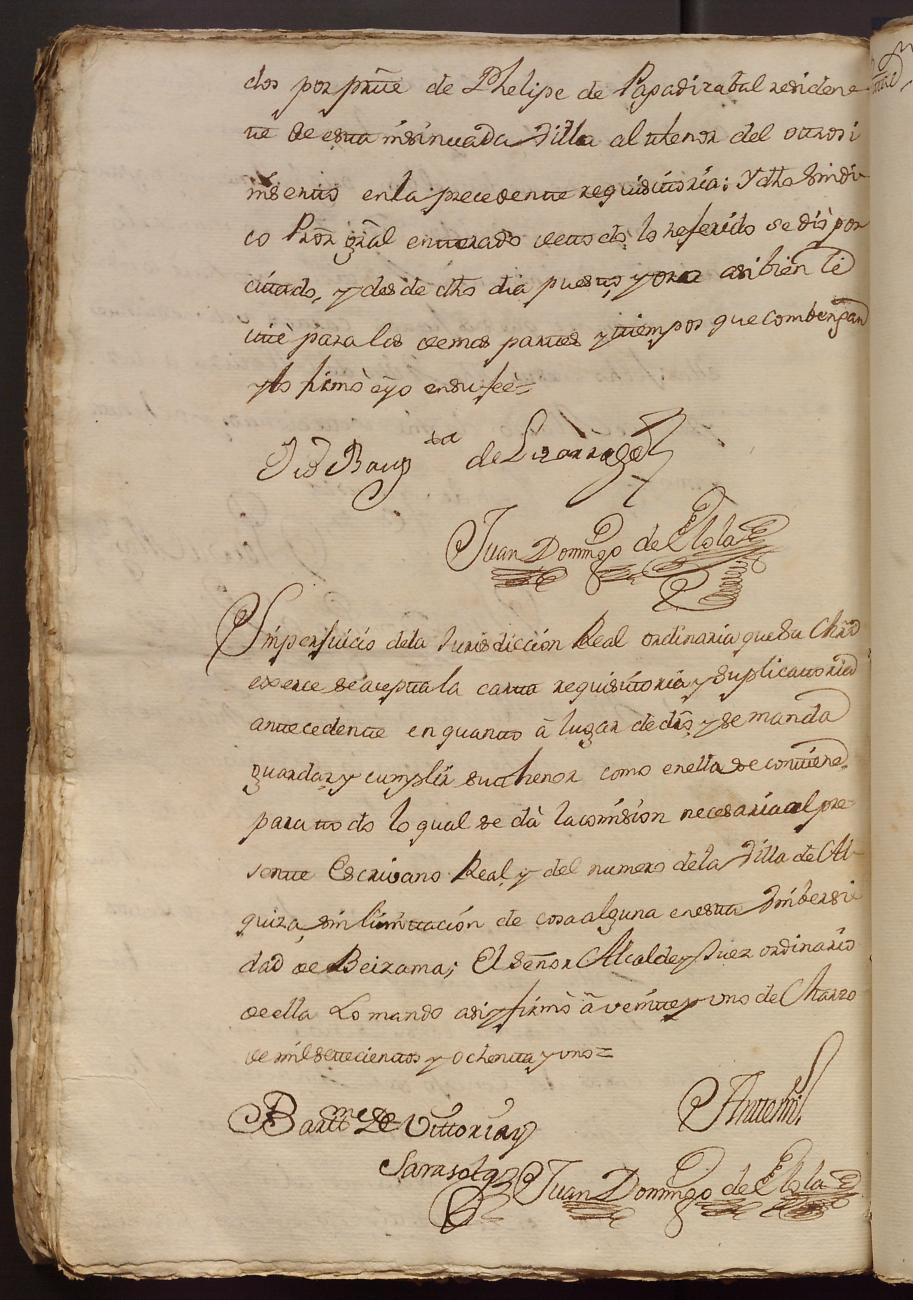 dos por prte de Phelipe de Papadizabal residen
te de esta insinuada Villa al thenor del otrosi
inserto en la precedente requisitoria: Y dho Sindi
co Prõr grãl enterado de todo lo referido se diò por
citado, y desde dho dia puesto, y ora asi bien le
citè para las demas partes y tiempos que combengan
y lo firmò è yo en su feè=
de Lizarraga
Juan Domingo de Elola
Sin perjuicio de la Jurisdiccion Real ordinaria que su Mrd
exerce se acepta la carta requisitoria y suplicatoria
antecedente en quanto à lugar de dro, y se manda
guardar, y cumplir su thenor como en ella se contiene,
para todo lo qual se dà la comision necesaria al pre-
sente Escrivano Real, y del numero de la Villa de Al-
quiza, sin limitación de cosa alguna en esta Vnibersi
dad de Beizama; El Señor Alcalde y Juez ordinario
de ella Lo mando asi y firmò à veinte y uno de Marzo
de mil setecientos y ochenta y uno=
Bartme de Vittoria y
Antemi
Sarasola
Juan Domingo de Elola